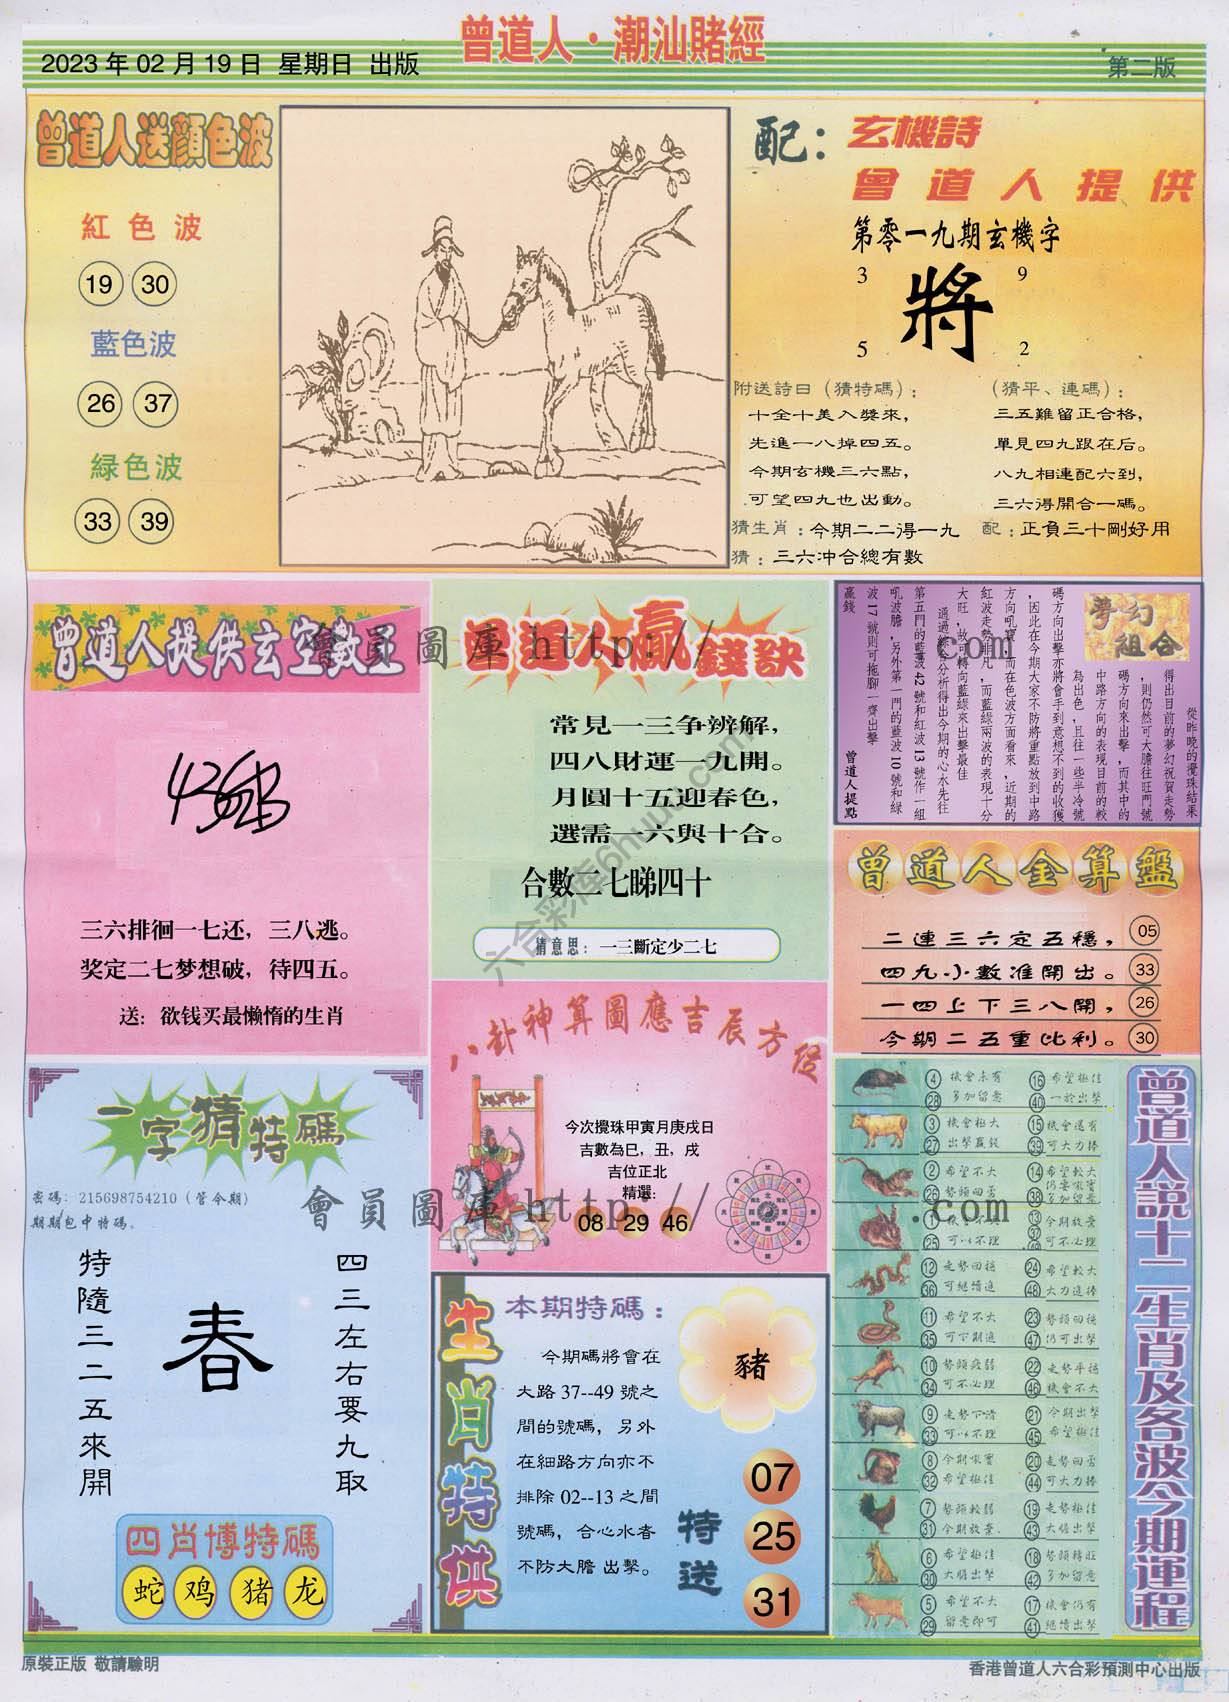 曾道人·潮汕賭經
2023年02月19日 星期日 出版
第二版
曾道人送顏色波
紅色波
19 30
藍色波
26 37
緑色波
33 39
配：玄機詩
曾道人提供
第零一九期玄機字
3 9
將
5 2
附送詩曰（猜特碼）：
十全十美入獎來，
先進一八掉四五。
今期玄機三六點，
可望四九也出動。
（猜平、連碼）：
三五難留正合格，
單見四九跟在后。
八九相連配六到，
三六得開合一碼。
猜生肖：今期二二得一九
配：正負三十剛好用
猜：三六沖合總有數
曾道人提供玄空數王
三六排徊一七还，三八逃。
奖定二七梦想破，待四五。
送：欲钱买最懒惰的生肖
曾道人贏錢訣
常見一三争辨解，
四八財運一九開。
月圓十五迎春色，
選需一六與十合。
合數二七睇四十
猜意思：一三斷定少二七
夢幻組合
從昨晚的攪珠結果
得出目前的夢幻祝賀走勢
，則仍然可大膽往旺門號
碼方向來出擊，而其中的
中路方向的表現目前的較
為出色，且往一些半冷號
碼方向出擊亦將會手到意想不到的收獲
，因此在今期大家不防將重點放到中路
方向吼寶，而在色波方面看來，近期的
紅波走勢非凡，而藍綠兩波的表現十分
大旺，故可轉向藍綠來出擊最佳
通過綜合分析得出今期的心水先往
第五門的藍波42號和紅波13號作一組
吼波膽，另外第一門的藍波10號和綠
波17號則可拖腳一齊出擊
贏錢
曾道人提點
曾道人金算盤
二連三六定五穩， 05
四九小數准開出。 33
一四上下三八開， 26
今期二五重比利。 30
會員圖庫 http:// .com
六合彩库6huuu.com
八卦神算圖應吉辰方位
今次攪珠甲寅月庚戌日
吉數為巳，丑，戌
吉位正北
精選：
08 29 46
會員圖庫 http:// .com
一字猜特碼
密碼：215698754210（管今期）
期期包中特碼。
四三左右要九取
春
特隨三二五來開
四肖博特碼
蛇 鸡 猪 龙
生肖特供
本期特碼：
今期碼將會在
大路37--49號之
間的號碼，另外
在細路方向亦不
排除02--13之間
號碼，合心水者
不防大膽出擊。
豬
特送
07
25
31
曾道人説十二生肖及各波今期運程
4 28 機會未有 多加留意 16 40 希望極佳 一於出擊
3 27 機會極大 出擊贏錢 15 39 機會還有 可大力捧
2 26 希望不大 勢頭回勇 14 38 希望較大 仍要吼寶 多加留意
1 25 機會不大 可以不理 13 37 49 今期放棄 可不必理
12 36 走勢回穩 可繼續進 24 48 希望較大 大力進捧
11 35 希望不大 可下期進 23 47 勢頭回穩 仍可出擊
10 34 勢頭疲弱 可不必理 22 46 走勢平穩 機會不大
9 33 走勢下滑 可以不理 21 45 今期出擊 希望極佳
8 32 今期吼寶 希望極佳 20 44 走勢回勇 可大力捧
7 31 勢頭較弱 今期放棄 19 43 走勢極佳 大膽出擊
6 30 希望極佳 大膽出擊 18 42 勢頭轉旺 多加留意
5 29 希望不大 留意即可 17 41 機會仍有 繼續出擊
原裝正版 敬請驗明
香港曾道人六合彩預測中心出版